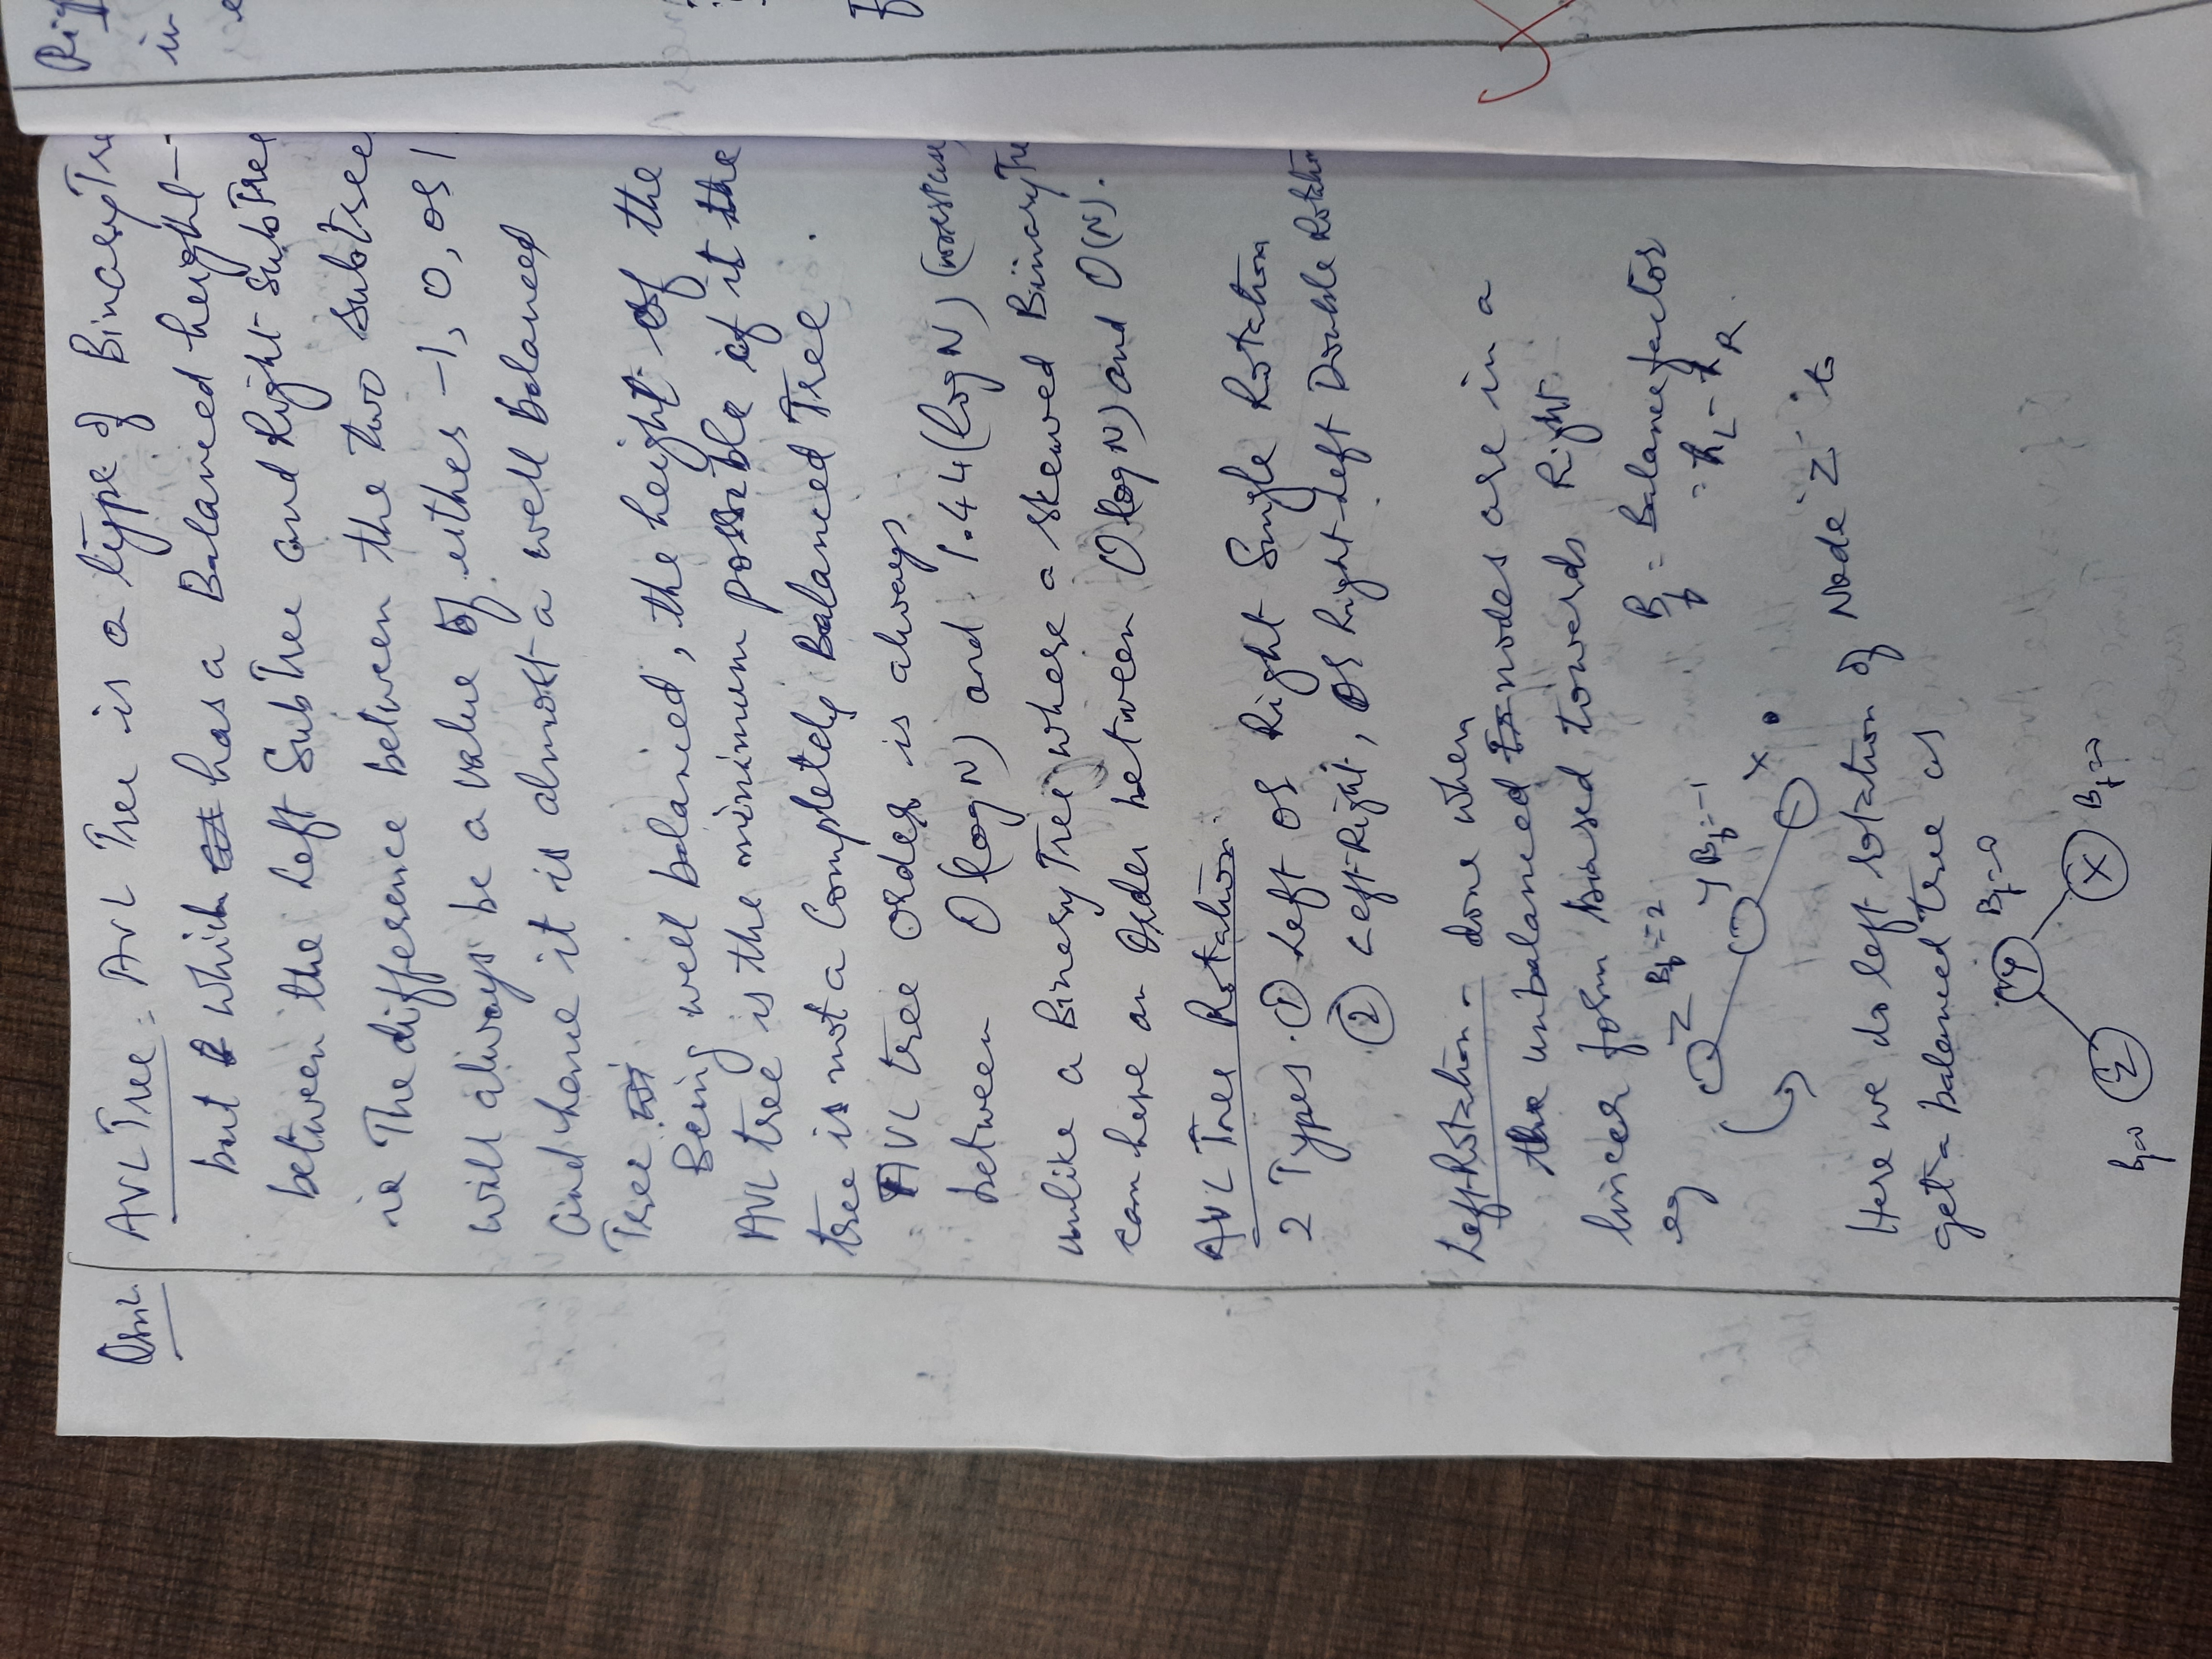 Qsn2.
AVL Tree : AVL Tree is a type of Binary Tre
but which has a Balanced height
between the Left SubTree and Right subTree
ie The difference between the two subtree
will always be a value of either -1, 0, or 1
and hence it is almost a well balanced
Tree
Being well balanced, the height of the
AVL tree is the minimum possible if it the
tree is not a Completely Balanced Tree.
AVL tree Order is always
between O(log N) and 1.44(log N) (worst case)
unlike a Binary Tree where a skewed Binary Tre
can have an Order between O(log N) and O(N).
AVL Tree Rotation
2 Types. ① Left or Right Single Rotation
② Left-Right, or Right-Left Double Rotation
Left Rotation - done when
the unbalanced nodes are in a
linear form biased towards Right
eg Z Bf = -2
Bf = Balance factor
Y Bf = -1
= hL - hR
X
Here we do left rotation of Node 'Z' to
get a balanced tree as
Y Bf = 0
Bf = 0 Z X Bf = 0
Rig
in